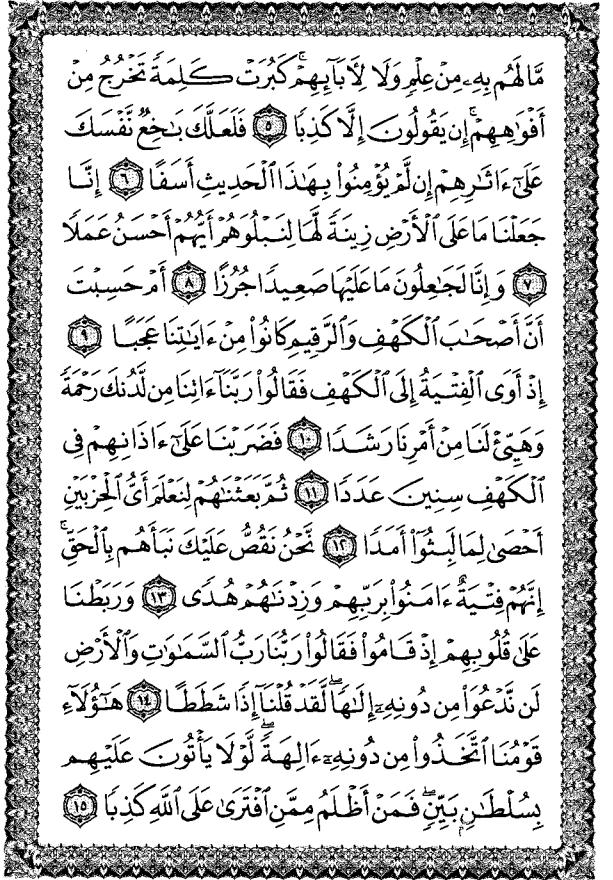 مَّا لَهُم بِهِۦ مِنْ عِلْمٍ وَلَا لِأٓبَآئِهِمْ ۚ كَبُرَتْ كَلِمَةً تَخْرُجُ مِنْ
أَفْوَٰهِهِمْ ۚ إِن يَقُولُونَ إِلَّا كَذِبًا ٥ فَلَعَلَّكَ بَٰخِعٌ نَّفْسَكَ
عَلَىٰٓ ءَاثَٰرِهِمْ إِن لَّمْ يُؤْمِنُوا۟ بِهَٰذَا ٱلْحَدِيثِ أَسَفًا ٦ إِنَّا
جَعَلْنَا مَا عَلَى ٱلْأَرْضِ زِينَةً لَّهَا لِنَبْلُوَهُمْ أَيُّهُمْ أَحْسَنُ عَمَلًا
٧ وَإِنَّا لَجَٰعِلُونَ مَا عَلَيْهَا صَعِيدًا جُرُزًا ٨ أَمْ حَسِبْتَ
أَنَّ أَصْحَٰبَ ٱلْكَهْفِ وَٱلرَّقِيمِ كَانُوا۟ مِنْ ءَايَٰتِنَا عَجَبًا ٩
إِذْ أَوَى ٱلْفِتْيَةُ إِلَى ٱلْكَهْفِ فَقَالُوا۟ رَبَّنَآ ءَاتِنَا مِن لَّدُنكَ رَحْمَةً
وَهَيِّئْ لَنَا مِنْ أَمْرِنَا رَشَدًا ١٠ فَضَرَبْنَا عَلَىٰٓ ءَاذَانِهِمْ فِى
ٱلْكَهْفِ سِنِينَ عَدَدًا ١١ ثُمَّ بَعَثْنَٰهُمْ لِنَعْلَمَ أَىُّ ٱلْحِزْبَيْنِ
أَحْصَىٰ لِمَا لَبِثُوٓا۟ أَمَدًا ١٢ نَّحْنُ نَقُصُّ عَلَيْكَ نَبَأَهُم بِٱلْحَقِّ ۚ
إِنَّهُمْ فِتْيَةٌ ءَامَنُوا۟ بِرَبِّهِمْ وَزِدْنَٰهُمْ هُدًى ١٣ وَرَبَطْنَا
عَلَىٰ قُلُوبِهِمْ إِذْ قَامُوا۟ فَقَالُوا۟ رَبُّنَا رَبُّ ٱلسَّمَٰوَٰتِ وَٱلْأَرْضِ
لَن نَّدْعُوَا۟ مِن دُونِهِۦٓ إِلَٰهًا ۖ لَّقَدْ قُلْنَآ إِذًا شَطَطًا ١٤ هَٰٓؤُلَآءِ
قَوْمُنَا ٱتَّخَذُوا۟ مِن دُونِهِۦٓ ءَالِهَةً ۖ لَّوْلَا يَأْتُونَ عَلَيْهِم
بِسُلْطَٰنٍۭ بَيِّنٍ ۖ فَمَنْ أَظْلَمُ مِمَّنِ ٱفْتَرَىٰ عَلَى ٱللَّهِ كَذِبًا ١٥